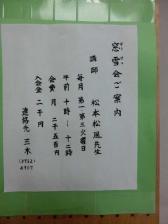 窓雪会ご案内
講師 松本松風先生
毎月 第一第三火曜日
午前 十時〜十二時
会費 月 二千五百円
入会金 二千円
連絡先 三木